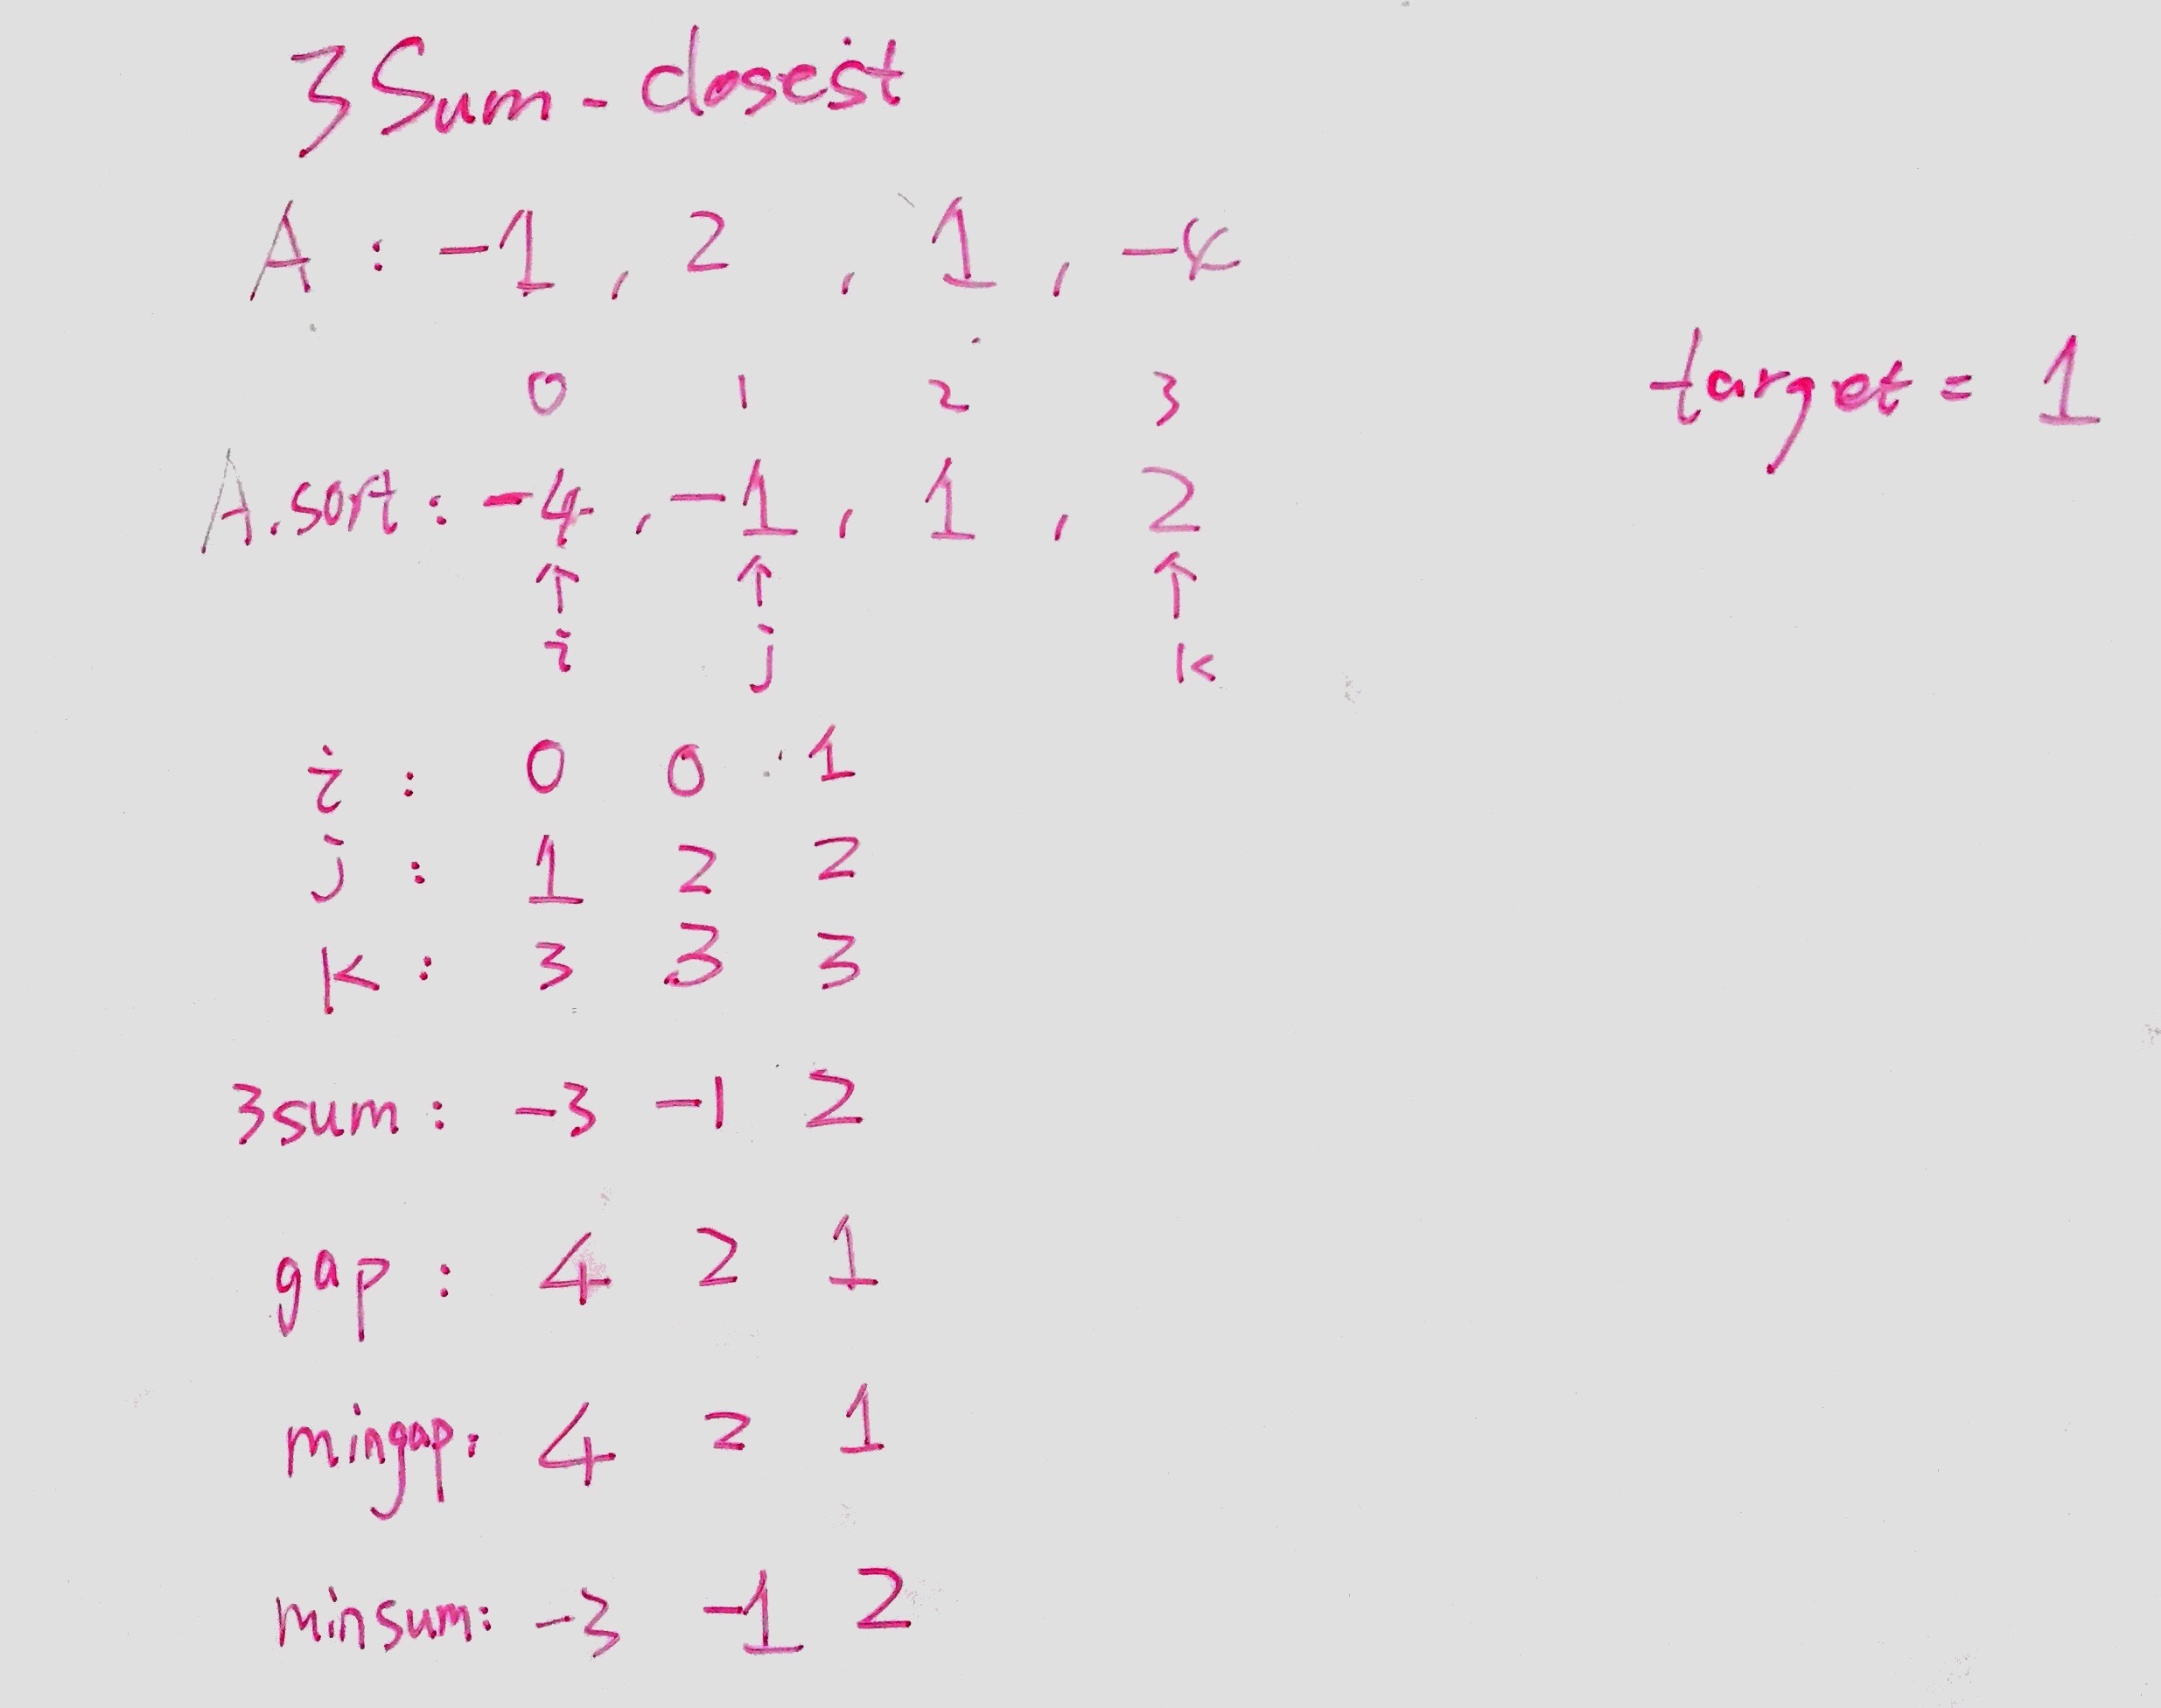 3Sum-closest
A : -1 , 2 , 1 , -4
0 1 2 3
target = 1
A.sort : -4 , -1 , 1 , 2
↑ ↑ ↑
i j k
i : 0 0 1
j : 1 2 2
k : 3 3 3
3sum : -3 -1 2
gap : 4 2 1
mingap: 4 2 1
minsum: -3 -1 2